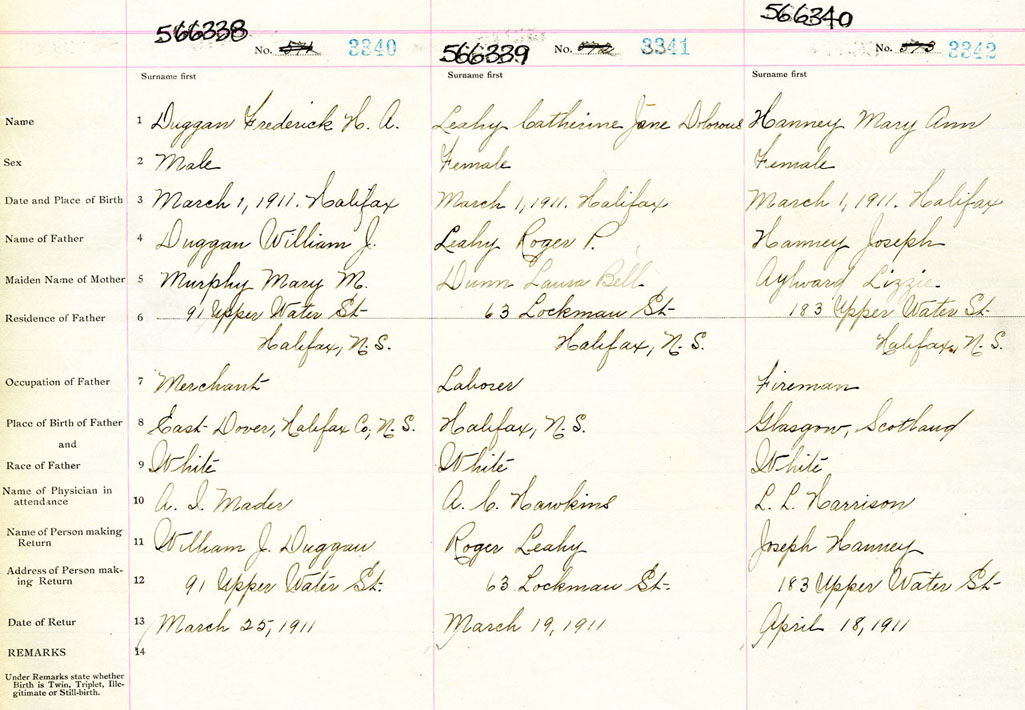 566338 566339 566340
No. 571 3340 No. 572 3341 No. 573 3342
Surname first Surname first Surname first
Name 1 Duggan Frederick H. A. Leahy Catherine Jane Dolorous Hanney Mary Ann
Sex 2 Male Female Female
Date and Place of Birth 3 March 1, 1911. Halifax March 1, 1911. Halifax March 1, 1911. Halifax
Name of Father 4 Duggan William J. Leahy Roger P. Hanney Joseph
Maiden Name of Mother 5 Murphy Mary M. Dunn Laura Bell Aylward Lizzie.
Residence of Father 6 91 Upper Water St. 63 Lockman St. 183 Upper Water St.
Halifax, N.S. Halifax, N.S. Halifax, N.S.
Occupation of Father 7 Merchant Laborer Fireman
Place of Birth of Father 8 East Dover, Halifax Co, N.S. Halifax, N.S. Glasgow, Scotland
and
Race of Father 9 White White White
Name of Physician in
attendance 10 A. I. Mader A. C. Hawkins L. L. Harrison
Name of Person making
Return 11 William J. Duggan Roger Leahy Joseph Hanney
Address of Person mak-
ing Return 12 91 Upper Water St. 63 Lockman St. 183 Upper Water St.
Date of Retur 13 March 25, 1911 March 19, 1911 April 18, 1911
REMARKS 14
Under Remarks state whether
Birth is Twin, Triplet, Ille-
gitimate or Still-birth.